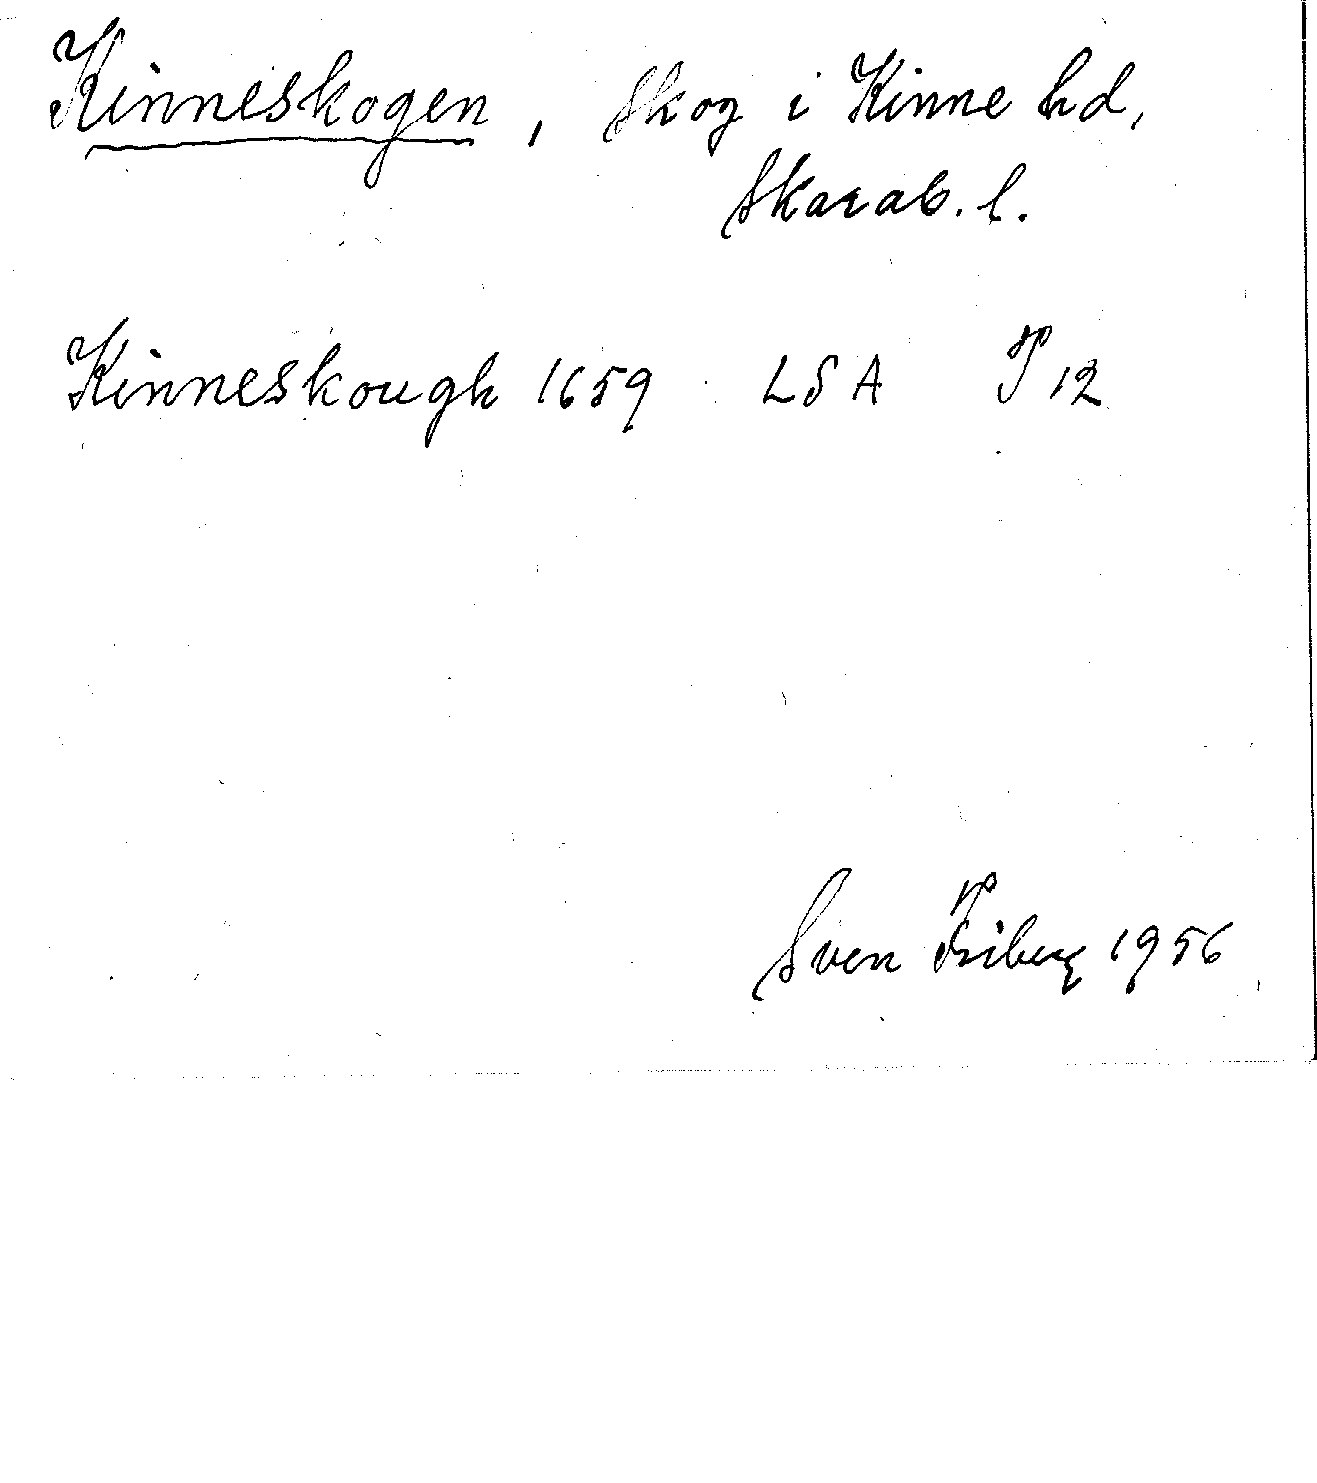 Kinneskogen, Skog i Kinne hd,
Skarab. l.
Kinneskough 1659 LSA P 12
Sven Friberg 1956